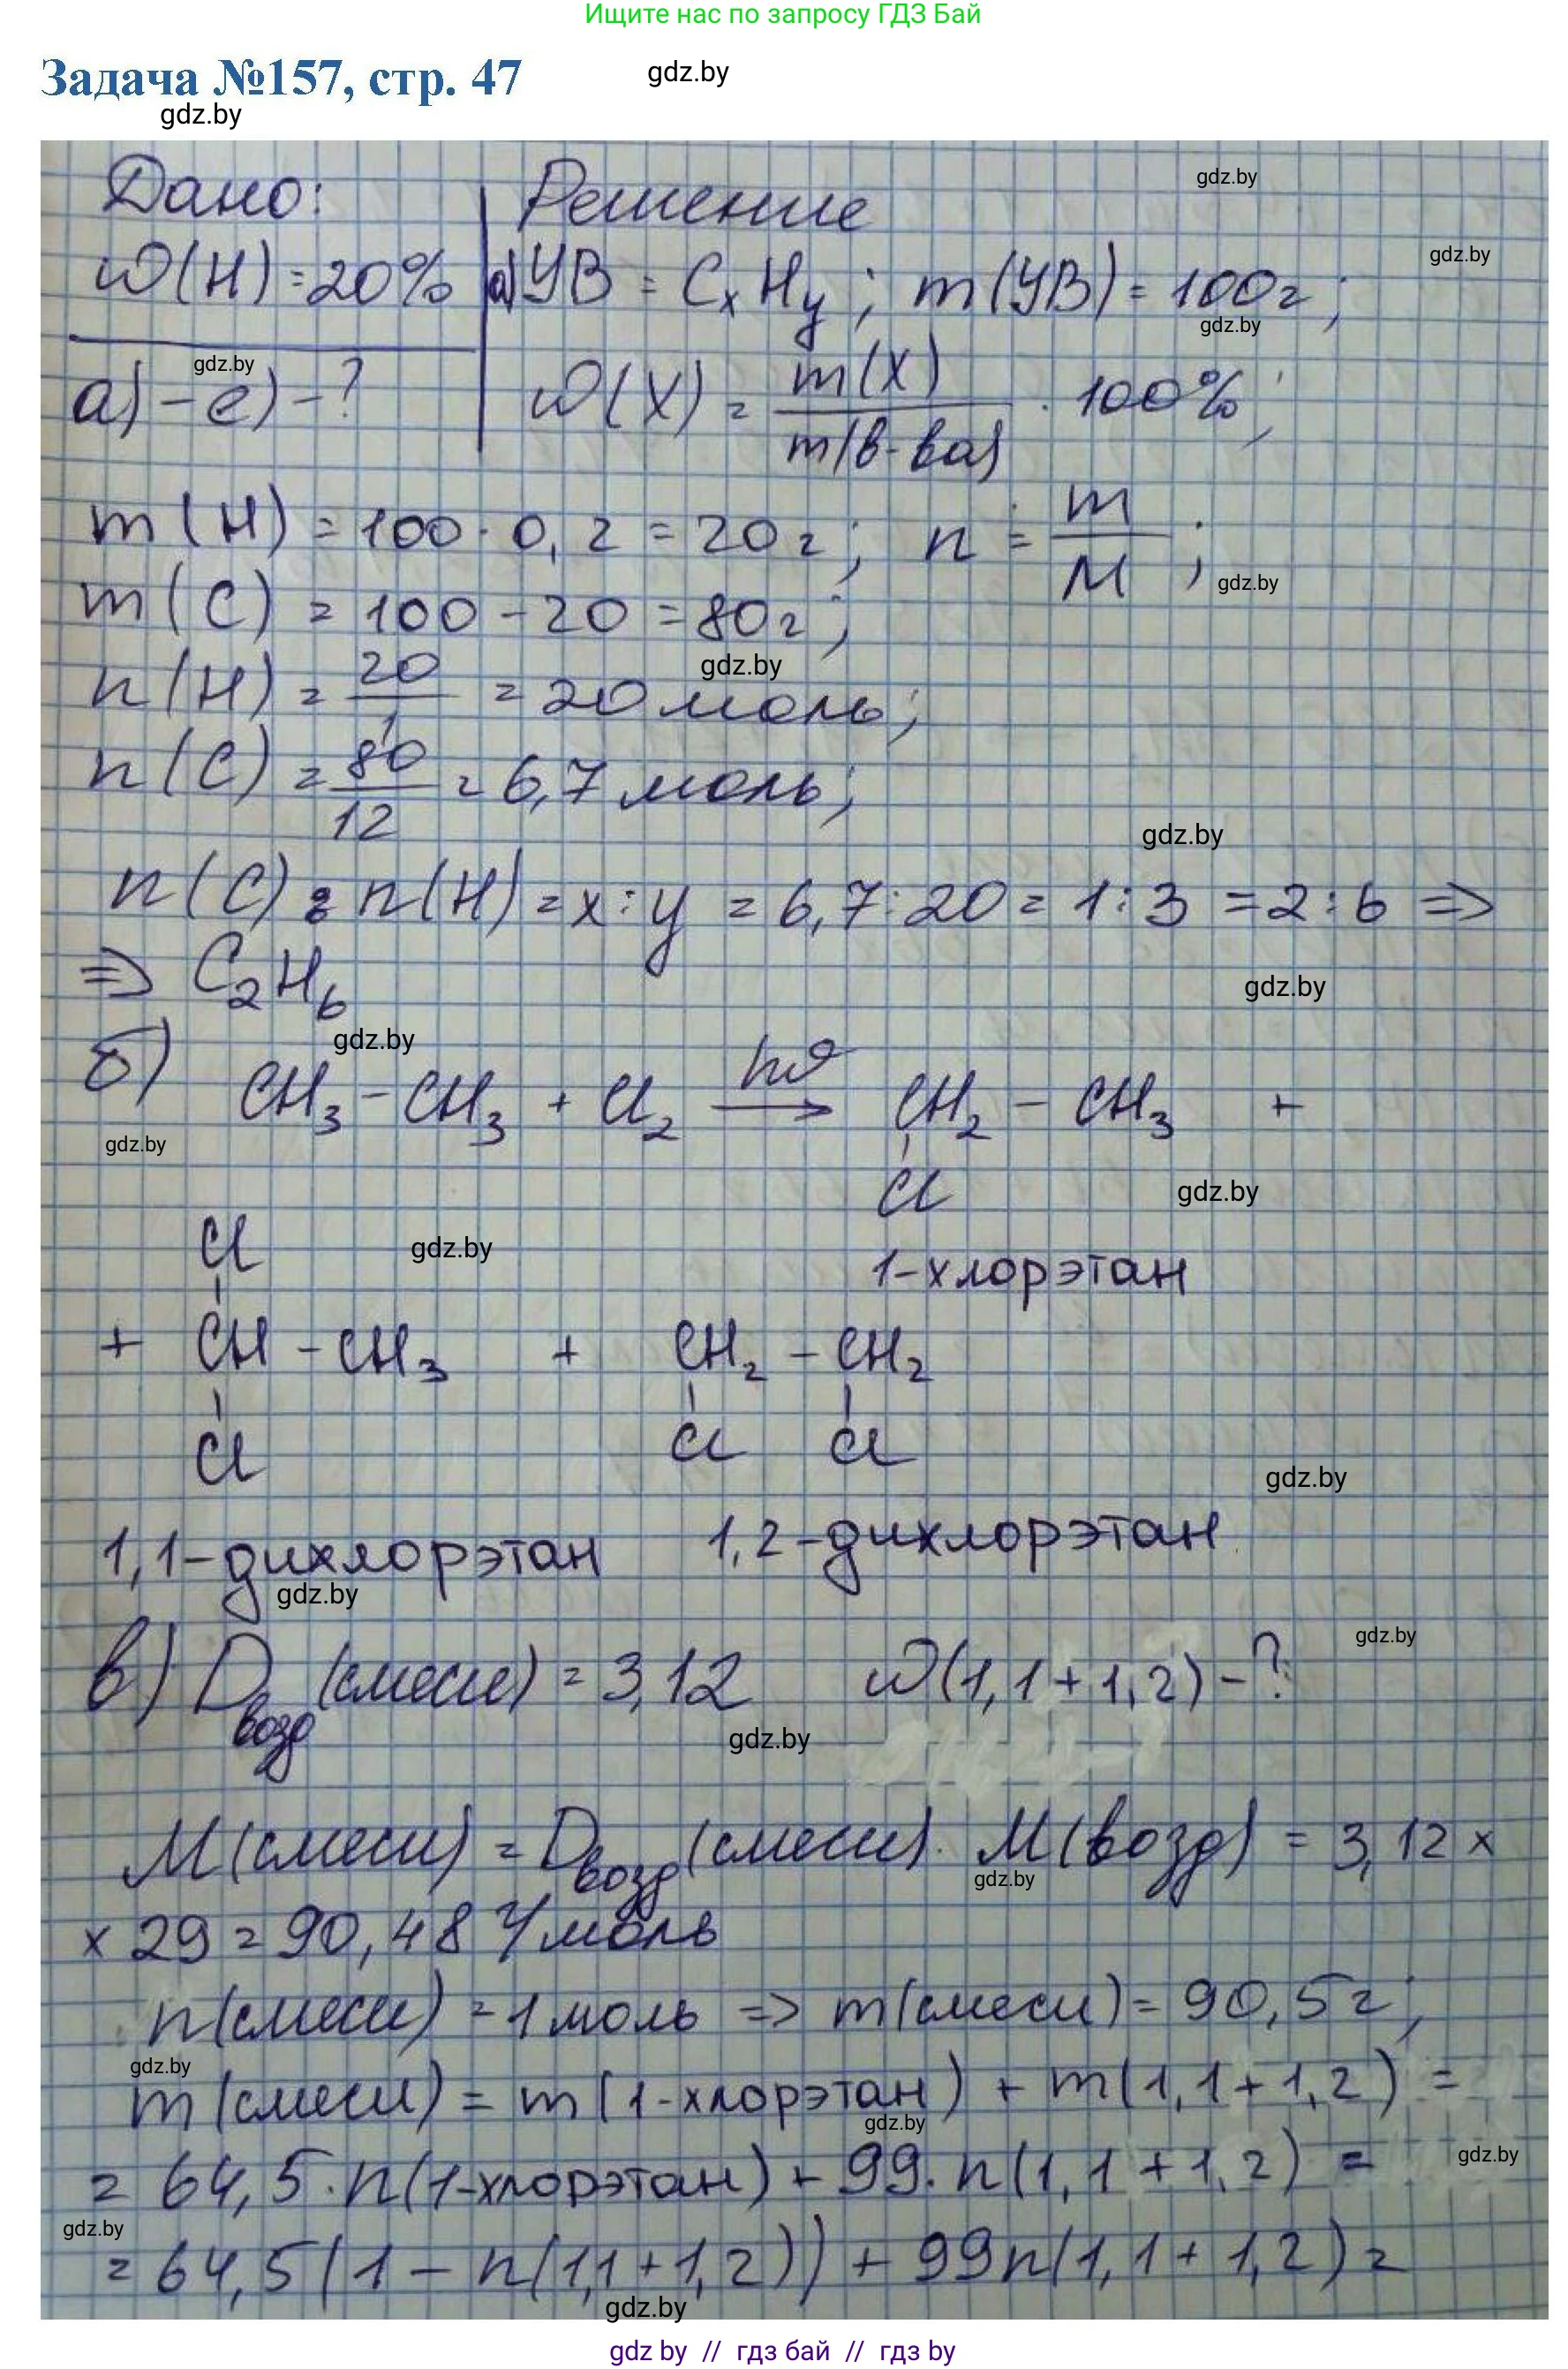 Ищите нас по запросу ГДЗ Бай
Задача №157, стр. 47
gdz.by
gdz.by
Дано:
Решение
gdz.by
ω(H) = 20%
а) УВ = CxHy ; m(УВ) = 100г ;
gdz.by
gdz.by
gdz.by
а) – е) – ?
ω(X) = m(X) / m(в-ва) · 100% ;
m(H) = 100 · 0,2 = 20г ; n = m / M ;
gdz.by
m(C) = 100 – 20 = 80г ;
gdz.by
n(H) = 20 / 1 = 20 моль ;
n(C) = 80 / 12 = 6,7 моль ;
gdz.by
n(C) : n(H) = x : y = 6,7 : 20 = 1 : 3 = 2 : 6 =>
=> C₂H₆
gdz.by
gdz.by
б) CH₃ – CH₃ + Cl₂ hϑ → CH₂ – CH₃ +
gdz.by
Cl
gdz.by
Cl
gdz.by
1-хлорэтан
+ CH – CH₃ + CH₂ – CH₂
Cl Cl Cl
gdz.by
1,1-дихлорэтан 1,2-дихлорэтан
gdz.by
в) Dвозд (смеси) = 3,12 ω(1,1 + 1,2) – ?
gdz.by
gdz.by
M(смеси) = Dвозд (смеси) · M(возд) = 3,12 ×
gdz.by
× 29 = 90,48 г/моль
n(смеси) = 1 моль => m(смеси) = 90,5г ;
gdz.by
m(смеси) = m(1-хлорэтан) + m(1,1 + 1,2) =
gdz.by
= 64,5 · n(1-хлорэтан) + 99 · n(1,1 + 1,2) =
gdz.by
gdz.by
= 64,5(1 – n(1,1 + 1,2)) + 99n(1,1 + 1,2) =
gdz.by
gdz by // гдз бай // гдз by